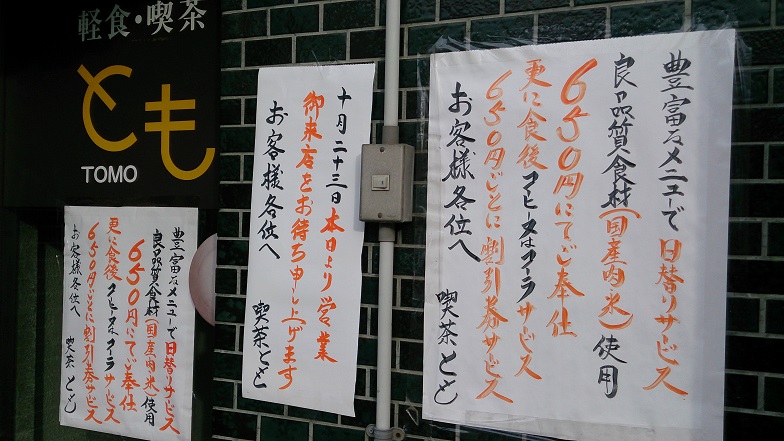 軽食・喫茶
とも
TOMO
豊富なメニューで日替りサービス
良品質食材(国産肉、米)使用
650円にてご奉仕
更に食後コーヒーはフーラサービス
650円ごとに割引券サービス
お客様各位へ
喫茶とも
十月二十三日本日より営業
御来店をお待ち申し上げます
お客様各位へ
喫茶とも
豊富なメニューで日替りサービス
良品質食材(国産内、米)使用
650円にてご奉仕
更に食後コーヒーはフーラサービス
650円ごとに割引券サービス
お客様各位へ
喫茶とも